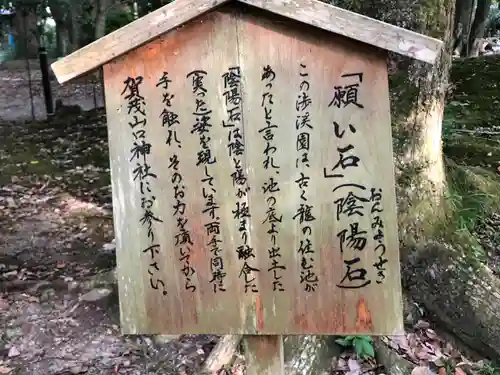 「願い石」(陰陽石)
おんみょうせき
この渉渓園は、古く龍の住む池が
あったと言われ、池の底より出土した
「陰陽石」は陰と陽が極まり融合
(実った)姿を現しています。両手で同時に
手を触れ、そのお力を頂いてから
賀茂山口神社にお参り下さい。